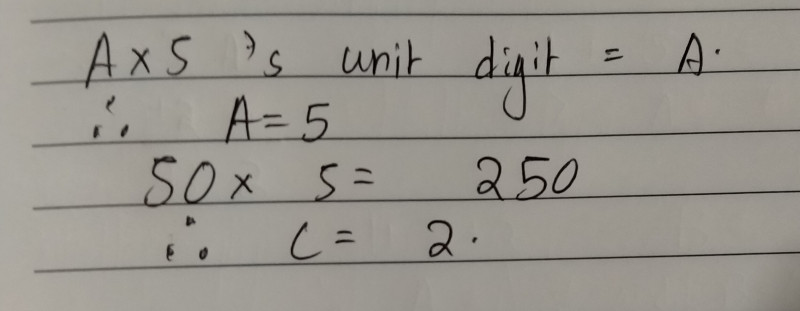 A × 5 's unit digit = A.
∴ A = 5
50 × 5 = 250
∴ C = 2.